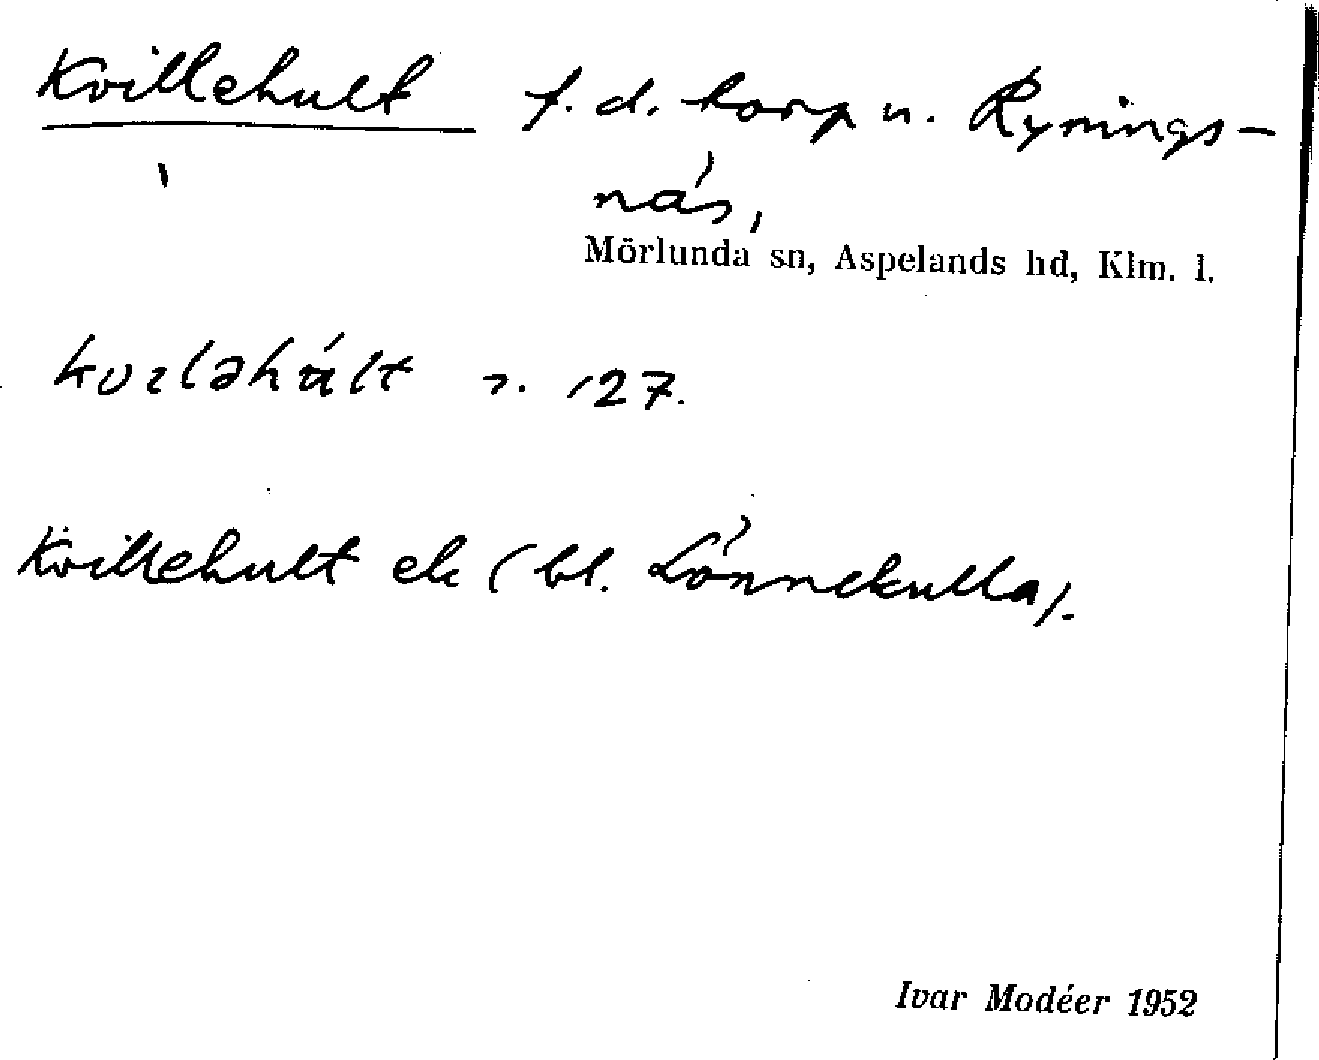 Kvillehult f. d. torp u. Rynings-
näs,
Mörlunda sn, Aspelands hd, Klm. l.
127.
Kvillehult ek (bl. Lönnekulla).
Ivar Modéer 1952